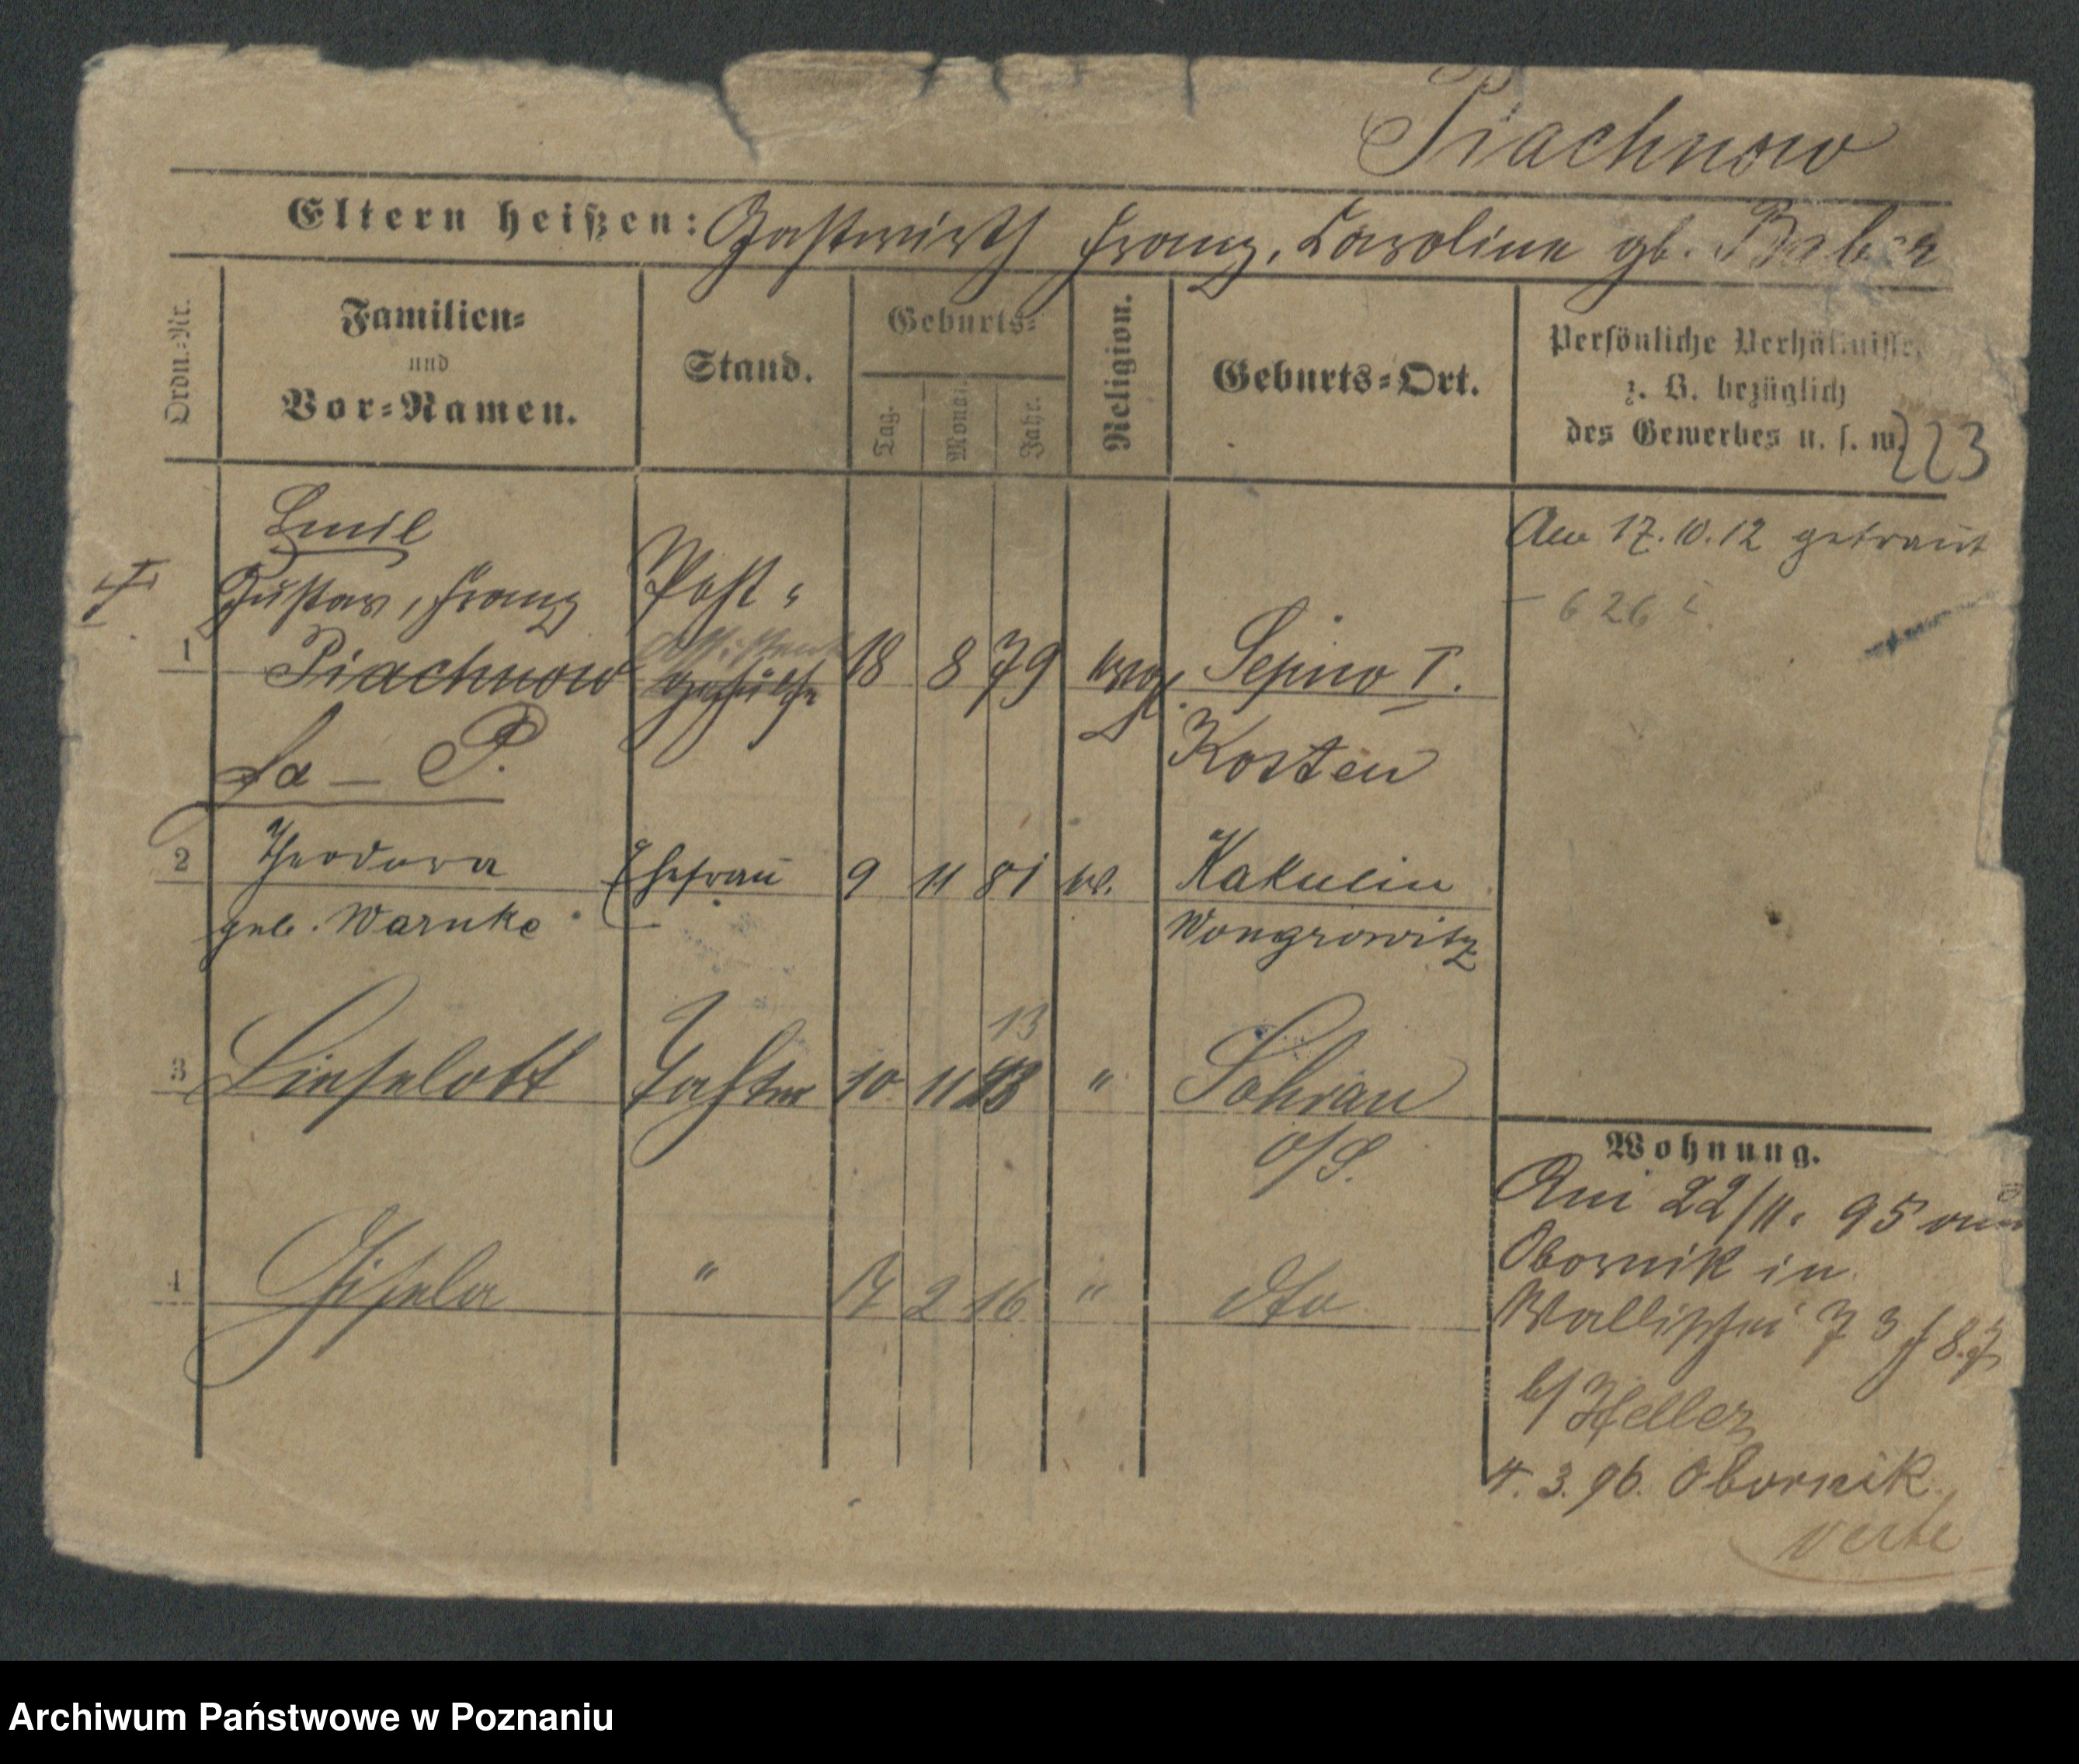 Piachnow
Eltern heißen: Gastwirth Franz, Caroline gb.
Ordn.-Nr.
Familien-
und
Vor-Namen.
Stand.
Geburts-
Tag.
Monat.
Jahr.
Religion.
Geburts-Ort.
Persönliche Verhältnisse,
z. B. bezüglich
des Gewerbes u. s. w.
223
Emil
Gustav, Franz Post-
1 Piachnow gehülfe 18 8 79 evgl. Sepno I.
P. Kosten
Am 17.10.12 getraut
626
2 Theodora Ehefrau 9 11 81 ev. Kakulin
geb. Warnke Wongrowitz
13
3 Lieselott Tochter 10 11 13 " Sohrau
O/S.
4 Gisela " 17 2 16 " dto
Wohnung.
Am 22/11. 95 von
Obornik in
Wallischei 73
b/ Heller
4. 3. 96. Obornik.
verte
Archiwum Państwowe w Poznaniu